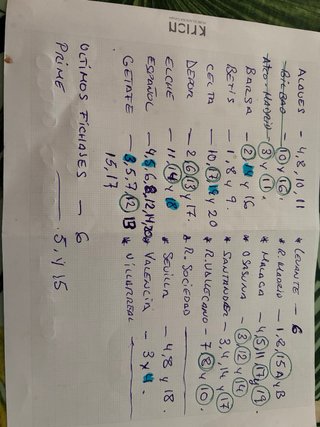 KRION
ALAVES - 4, 8, 10, 11
BILBAO - 10 y 16.
ATCO MADRID - 3 y 11.
BARSA - 2, y 16
BETIS - 1, 8 y 9.
CELTA - 10, 17, y 20
DEPOR - 2, 6, 13 y 17.
ELCHE - 11, 14 y 18
ESPAÑOL - 4, 5, 6, 8, 12, 14, 20
GETAFE - 3, 5, 7, 12, 13
15, 17
* LEVANTE - 6
* R. MADRID - 1, 2, 15 A y B
* MALAGA - 4, 5, 11, 17 y 19.
* OSASUNA - 3, 12 y 14
* SANTANDER - 3, 4, 14 y 17
* R. VALLECANO - 7, 8 y 10.
* R. SOCIEDAD
* SEVILLA - 4, 8 y 18.
* VALENCIA - 3 y
* VILLARREAL
ULTIMOS FICHAJES - 6
PRIME 5 y 15